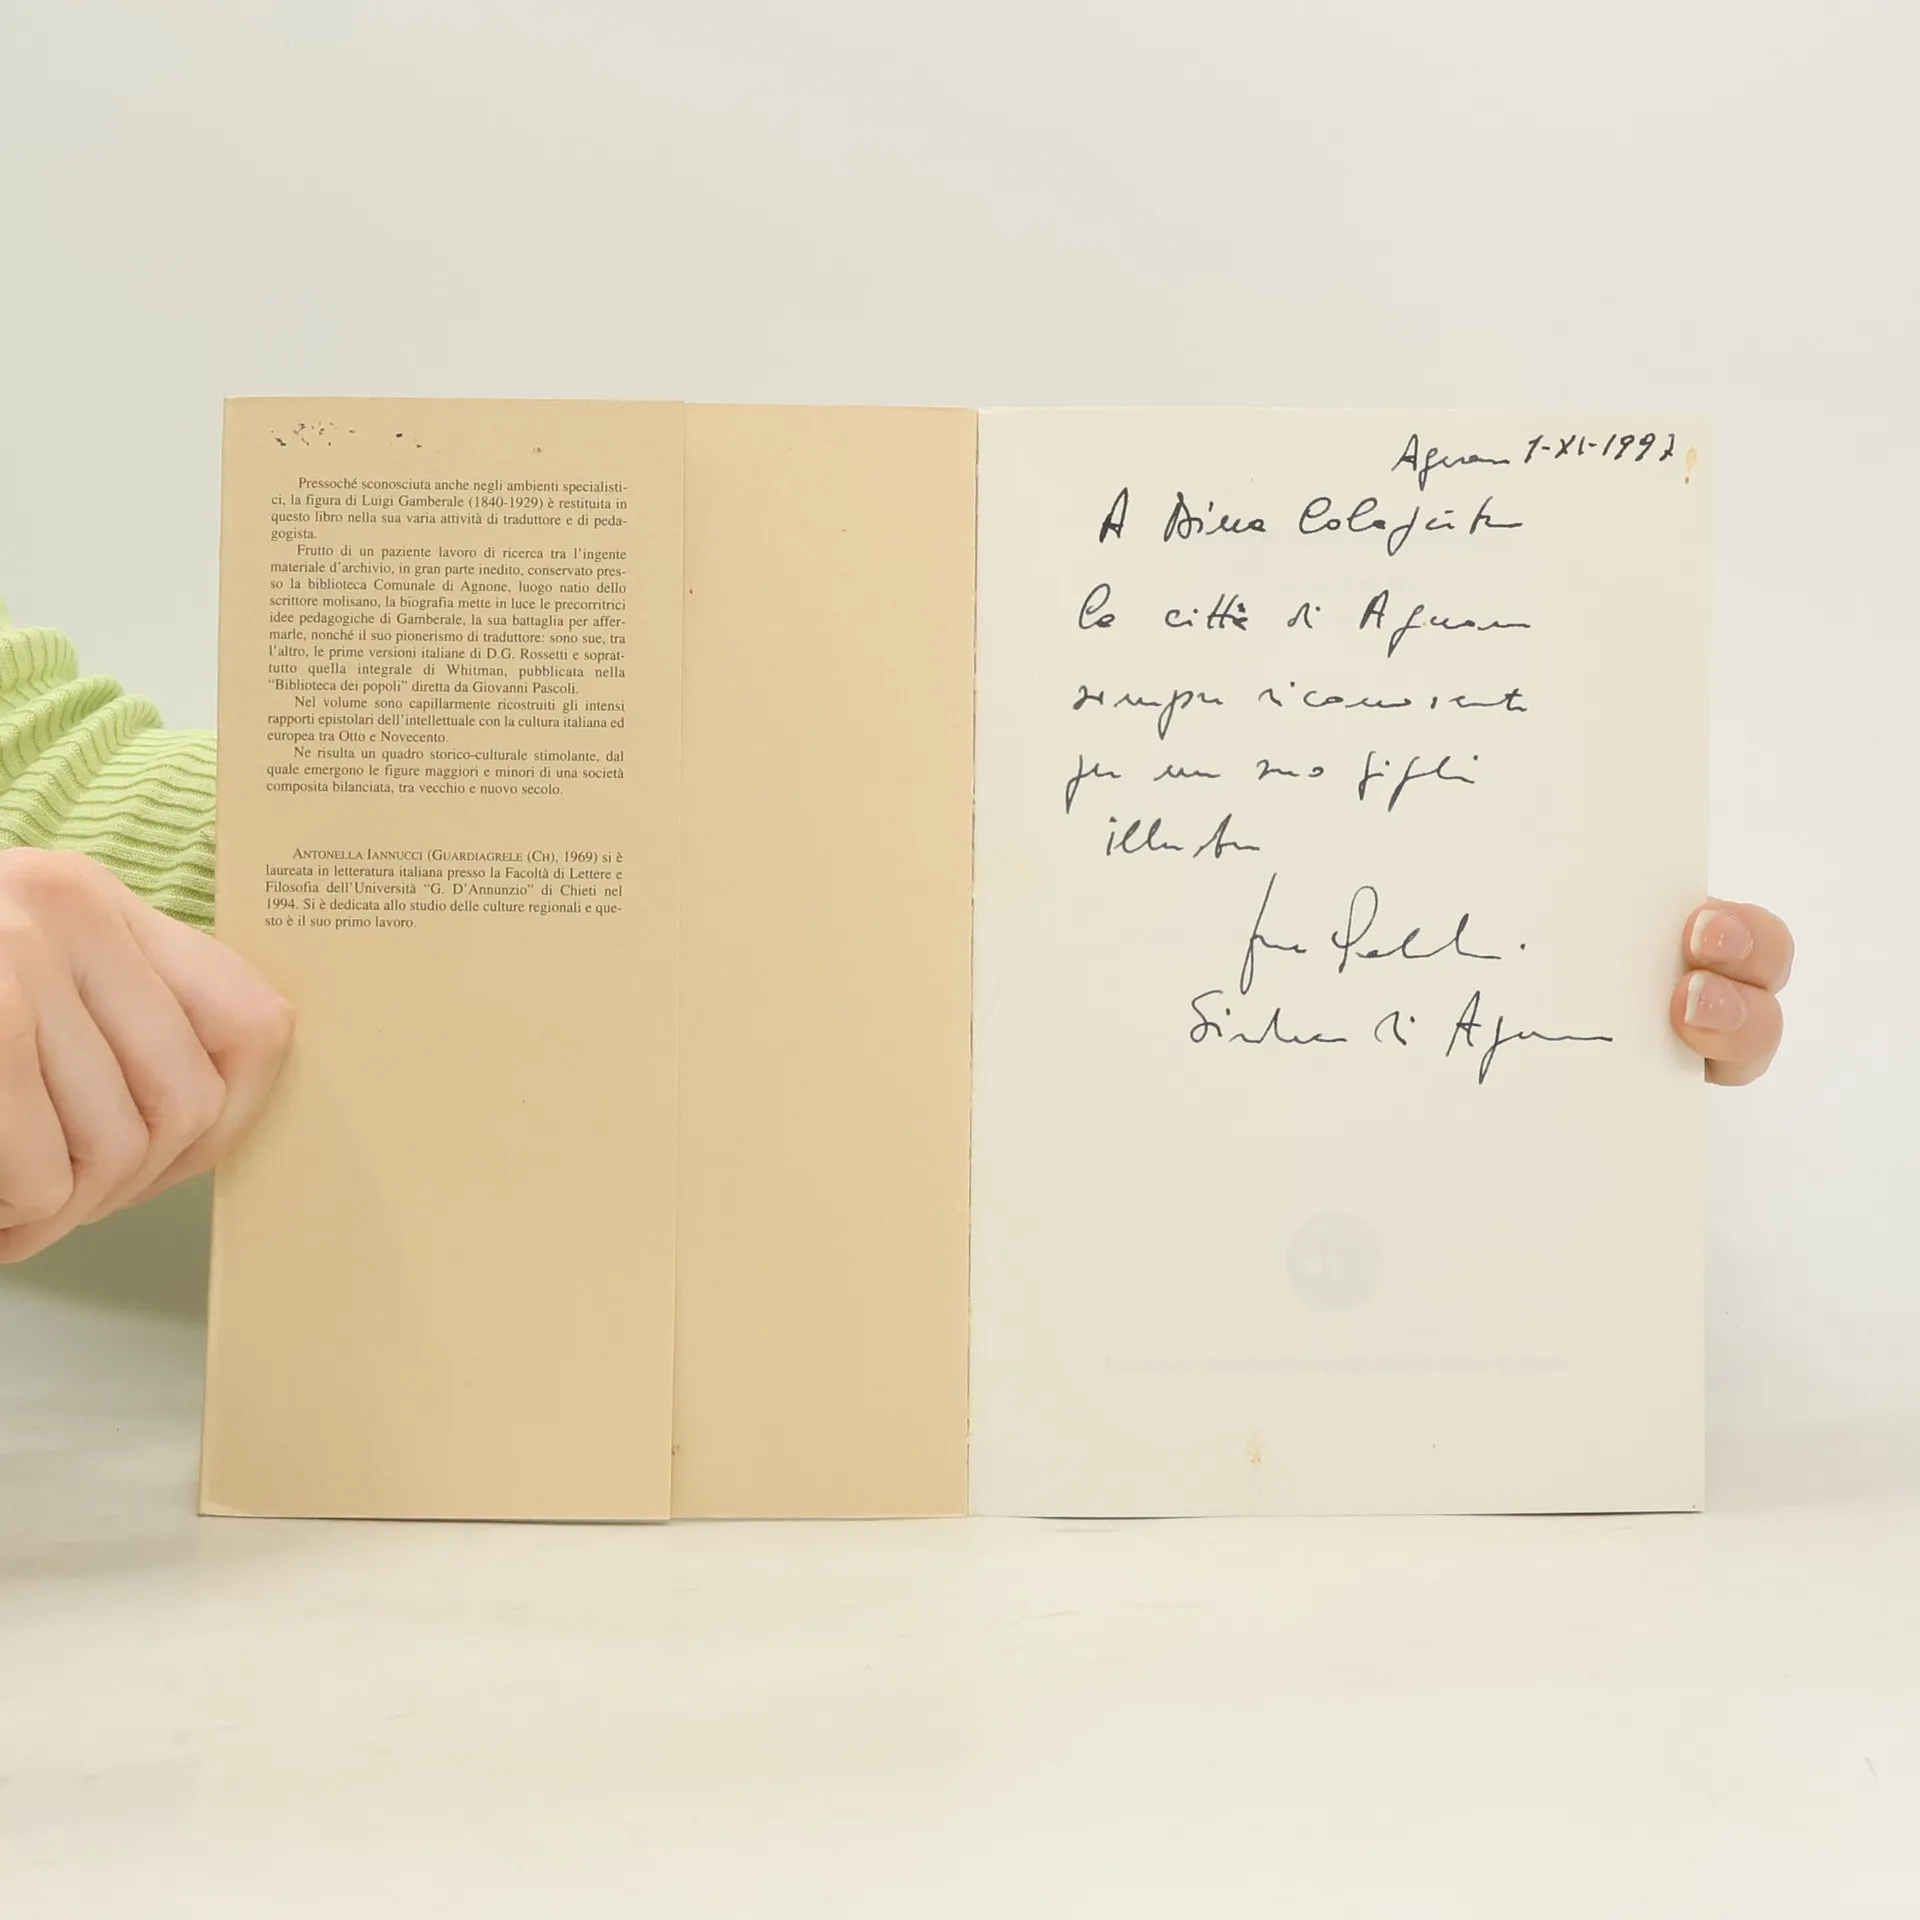 Pressoché sconosciuta anche negli ambienti specialisti-
ci, la figura di Luigi Gamberale (1840-1929) è restituita in
questo libro nella sua varia attività di traduttore e di peda-
gogista.
Frutto di un paziente lavoro di ricerca tra l'ingente
materiale d'archivio, in gran parte inedito, conservato pres-
so la biblioteca Comunale di Agnone, luogo natio dello
scrittore molisano, la biografia mette in luce le precorritrici
idee pedagogiche di Gamberale, la sua battaglia per affer-
marle, nonché il suo pionerismo di traduttore: sono sue, tra
l'altro, le prime versioni italiane di D.G. Rossetti e soprat-
tutto quella integrale di Whitman, pubblicata nella
"Biblioteca dei popoli" diretta da Giovanni Pascoli.
Nel volume sono capillarmente ricostruiti gli intensi
rapporti epistolari dell'intellettuale con la cultura italiana ed
europea tra Otto e Novecento.
Ne risulta un quadro storico-culturale stimolante, dal
quale emergono le figure maggiori e minori di una società
composita bilanciata, tra vecchio e nuovo secolo.
ANTONELLA IANNUCCI (GUARDIAGRELE (CH), 1969) si è
laureata in letteratura italiana presso la Facoltà di Lettere e
Filosofia dell'Università "G. D'Annunzio" di Chieti nel
1994. Si è dedicata allo studio delle culture regionali e que-
sto è il suo primo lavoro.
Agnone 1-XI-1997
A
la città di Agnone
sempre riconoscente
per un suo figlio
illustre
Sindaco di Agnone